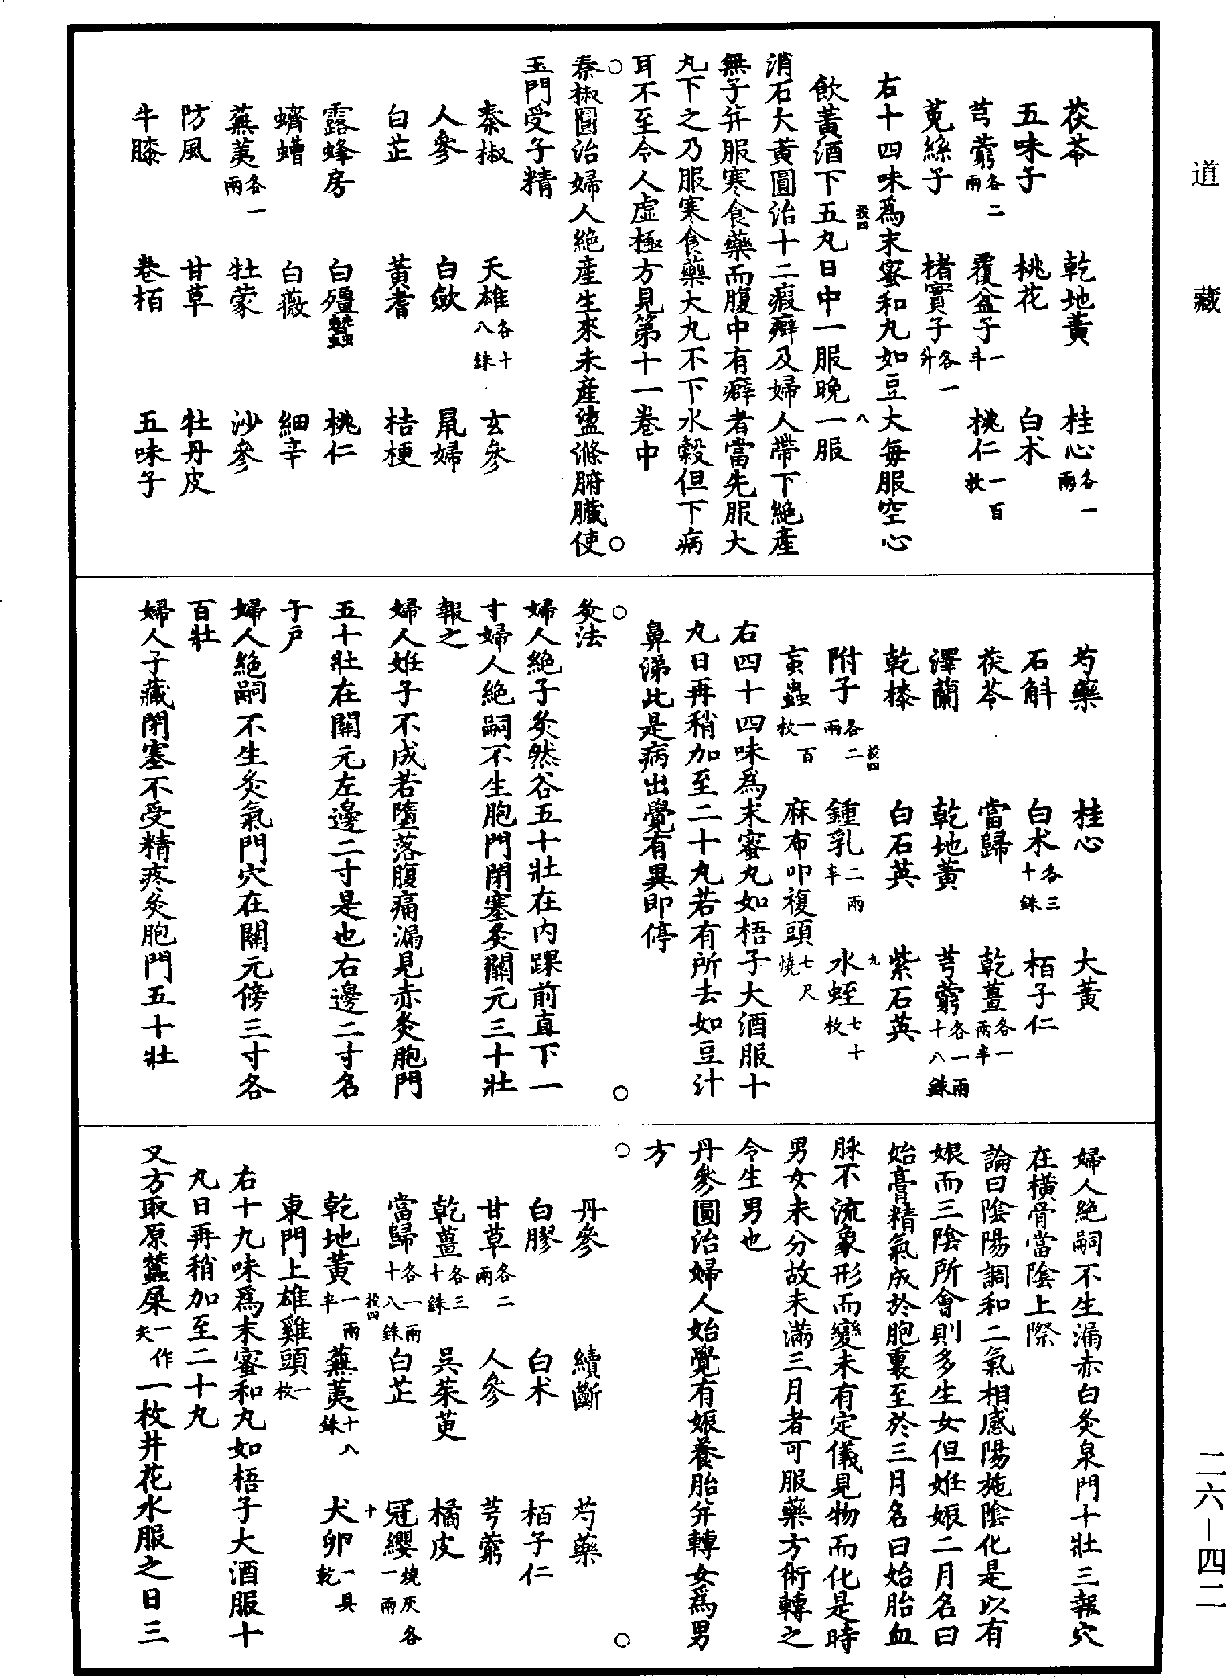 道藏
茯苓　乾地黄　桂心各一兩
五味子　桃花　白术
芎藭各二兩　覆盆子一升半　桃仁一百枚
菟絲子　楮實子各一升
右十四味爲末蜜和丸如豆大每服空心
飲黄酒下五丸日中一服晚一服
消石大黄圓治十二瘕癖及婦人帶下絶產
無子并服寒食藥而腹中有癖者當先服大
丸下之乃服寒食藥大丸不下水穀但下病
耳不至令人虛極方見第十一卷中
秦椒圓治婦人絶産生來未産盪滌腑臟使
玉門受子精
秦椒　天雄各十八銖　玄參
人參　白歛　鼠婦
白芷　黄耆　桔梗
露蜂房　白殭蠶　桃仁
蠐螬　白薇　細辛
蕪荑各一兩　牡蒙　沙參
防風　甘草　牡丹皮
牛膝　卷栢　五味子
芍藥　桂心　大黄
石斛　白术各三十銖　栢子仁
茯苓　當歸　乾薑各一兩半
澤蘭　乾地黄　芎藭各一兩十八銖
乾漆　白石英　紫石英
附子各二兩　鍾乳二兩半　水蛭七十枚
䖟蟲一百枚　麻布叩複頭七尺燒
右四十四味爲末蜜丸如梧子大酒服十
丸日再稍加至二十丸若有所去如豆汁
鼻涕此是病出覺有異即停
灸法
婦人絶子灸然谷五十壯在内踝前直下一
寸婦人絶嗣不生胞門閉塞灸關元三十壯
報之
婦人姙子不成若墮落腹痛漏見赤灸胞門
五十壯在關元左邊二寸是也右邊二寸名
子户
婦人絶嗣不生灸氣門穴在關元傍三寸各
百壯
婦人子藏閉塞不受精疼灸胞門五十壯
婦人絶嗣不生漏赤白灸泉門十壯三報穴
在橫骨當陰上際
論曰陰陽調和二氣相感陽施陰化是以有
娠而三陰所會則多生女但姙娠二月名曰
始膏精氣成於胞裏至於三月名曰始胎血
脉不流象形而變未有定儀見物而化是時
男女未分故未滿三月者可服藥方術轉之
令生男也
丹參圓治婦人始覺有娠養胎并轉女爲男
方
丹參　續斷　芍藥
白膠　白术　栢子仁
甘草各二兩　人參　芎藭
乾薑各三十銖　吳茱萸　橘皮
當歸各一兩十八銖　白芷　冠纓燒灰各一兩
乾地黄一兩半　蕪荑十八銖　犬卵一具乾
東門上雄雞頭一枚
右十九味爲末蜜和丸如梧子大酒服十
丸日再稍加至二十丸
又方取原蠶屎一作矢一枚井花水服之日三
投四　八
投四　九
投四　十
二六—四二